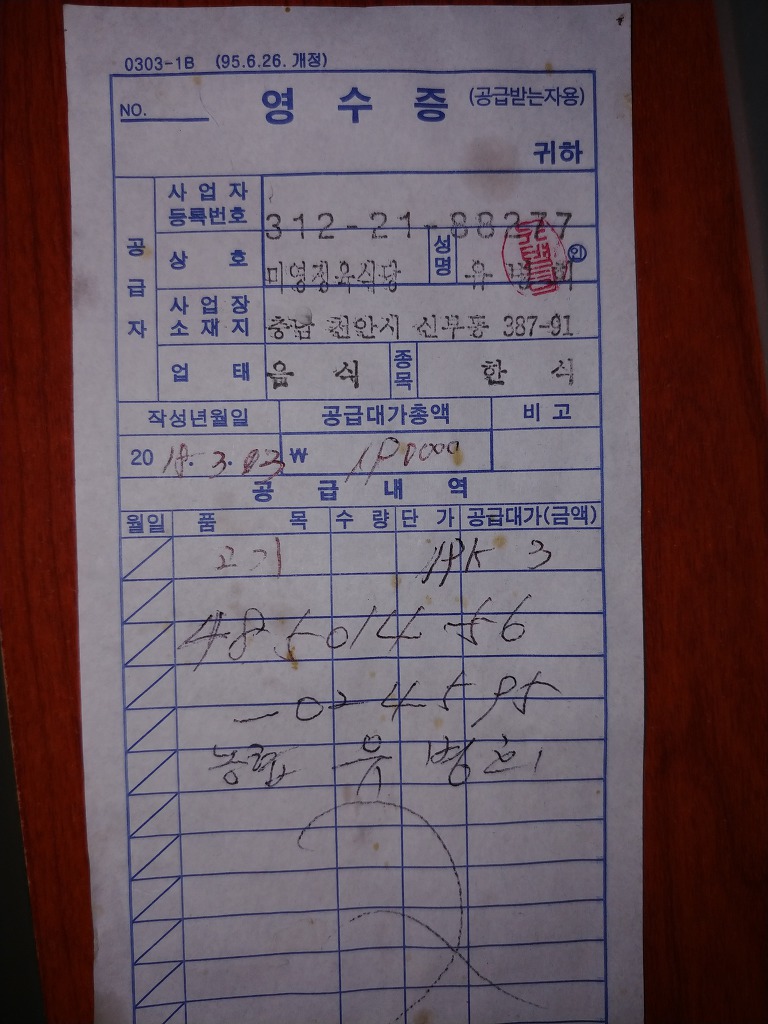 0303-1B (95.6.26. 개정)
NO. 영 수 증 (공급받는자용)
귀하
공급자
사업자등록번호 312-21-88277
상 호 미영정육식당 성명 유병희 ㊞
사업장소재지 충남 천안시 신부동 387-91
업 태 음 식 종목 한 식
작성년월일 공급대가총액 비고
2018. 3. 03 ₩
공 급 내 역
월일 품 목 수 량 단 가 공급대가(금액)
고기 3
485014-56
-024595
농협 유병희